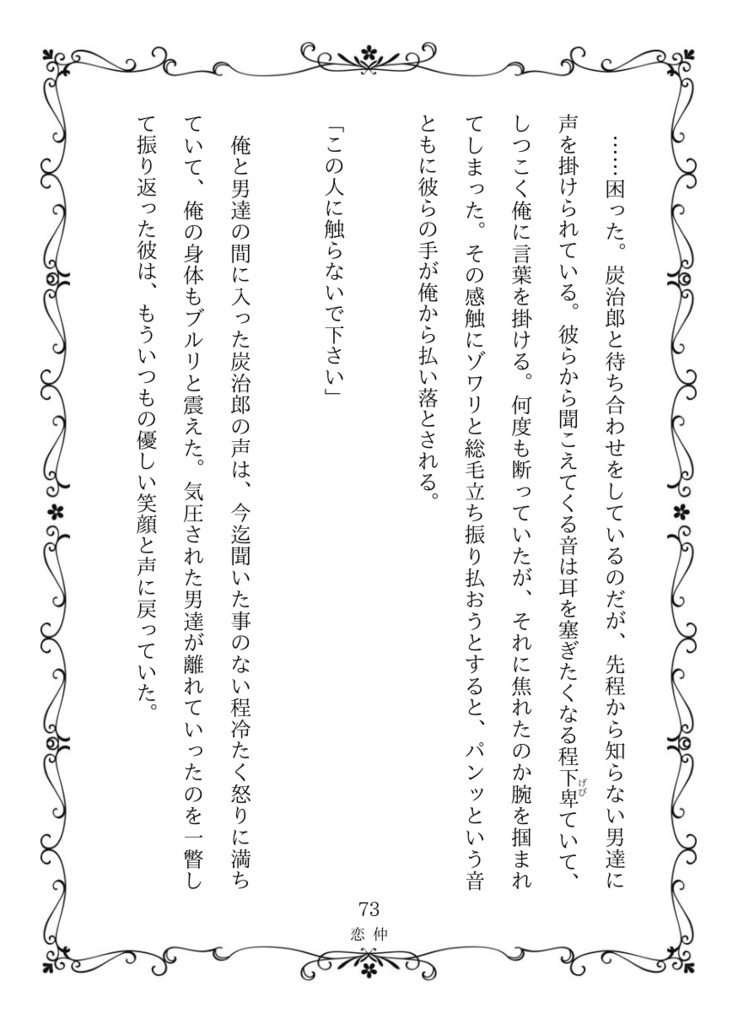 ……困った。炭治郎と待ち合わせをしているのだが、先程から知らない男達に
声を掛けられている。彼らから聞こえてくる音は耳を塞ぎたくなる程下卑ていて、
げび
しつこく俺に言葉を掛ける。何度も断っていたが、それに焦れたのか腕を掴まれ
てしまった。その感触にゾワリと総毛立ち振り払おうとすると、パンッという音
ともに彼らの手が俺から払い落とされる。
「この人に触らないで下さい」
俺と男達の間に入った炭治郎の声は、今迄聞いた事のない程冷たく怒りに満ち
ていて、俺の身体もブルリと震えた。気圧された男達が離れていったのを一瞥し
て振り返った彼は、もういつもの優しい笑顔と声に戻っていた。
73
恋仲